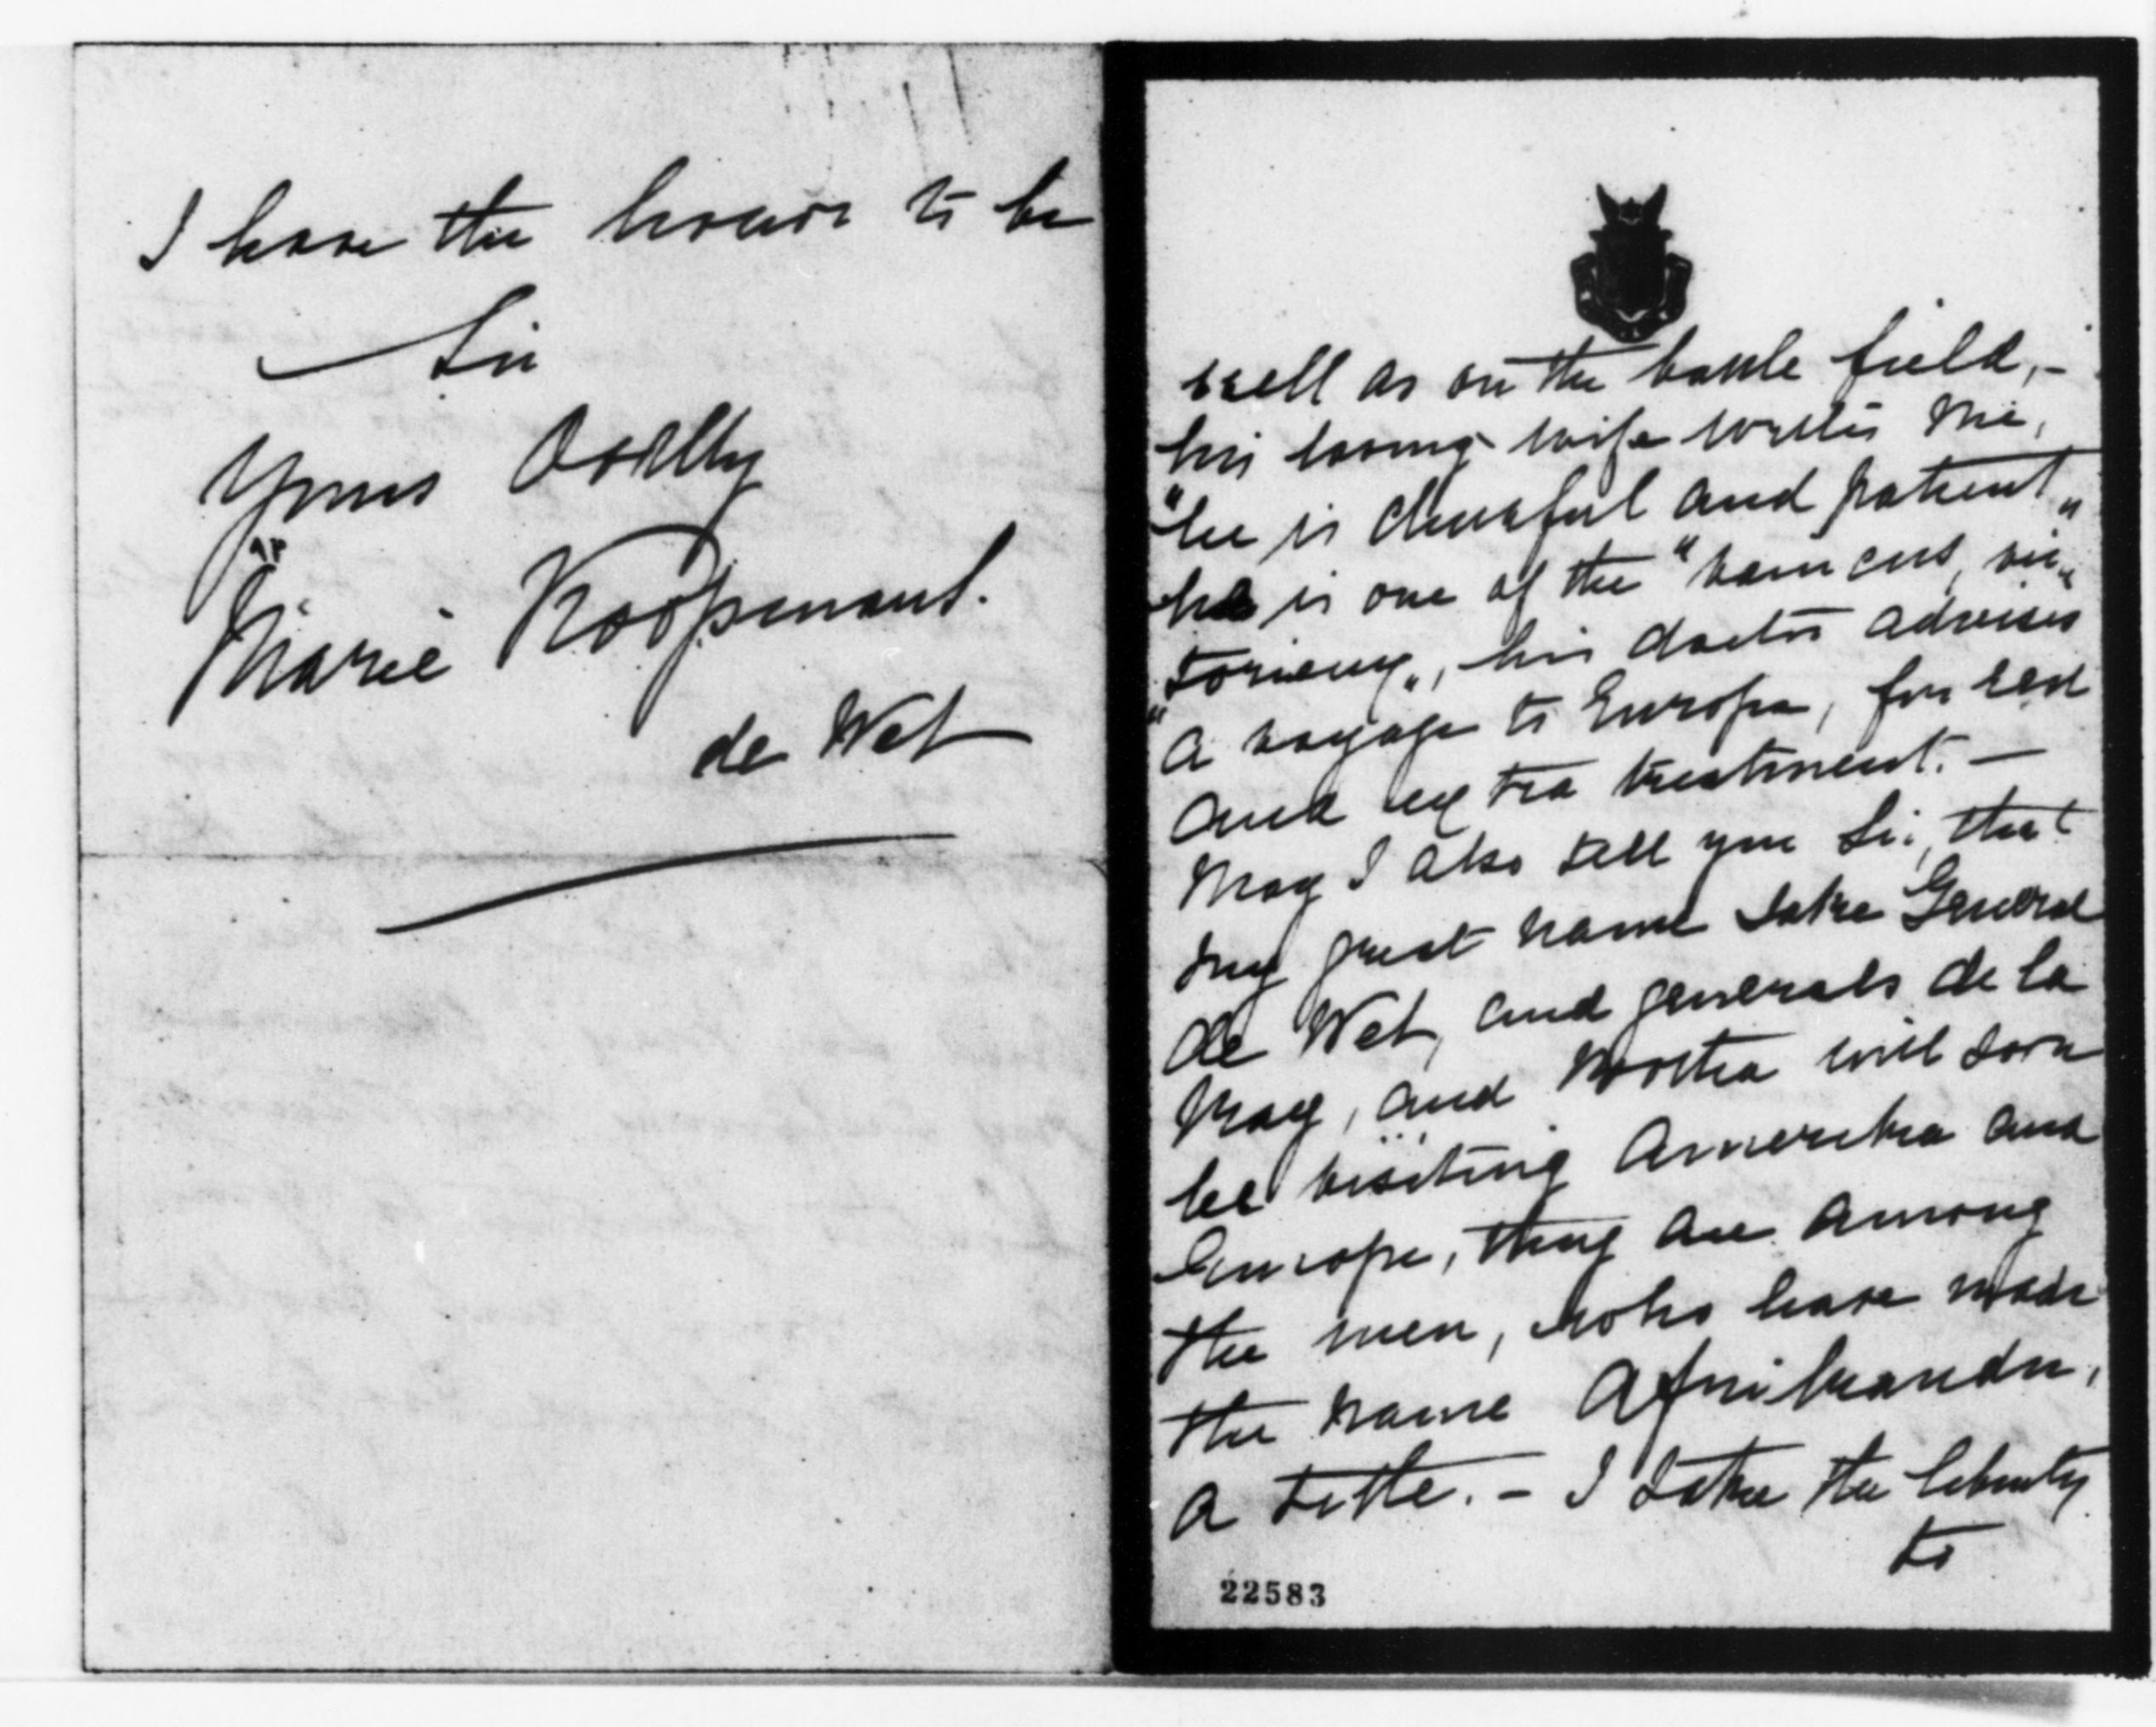 I have the honour to be
Sir
Yours
Marie Koopmans.
de Wet
well as on the battle field,-
his loving wife writes me,
"he is cheerful and patient"
he is one of the "vaincus, vic-
"torieux", his doctor advises
a voyage to Europe, for rest
and extra treatment. -
May I also tell you Sir, that
my great name sake General
de Wet, and generals de la
Mey, and Bootha will soon
be visiting Amerika and
Europe, they are among
the men, who have made
the name Afrikander,
a title. - I take the liberty
to
22583